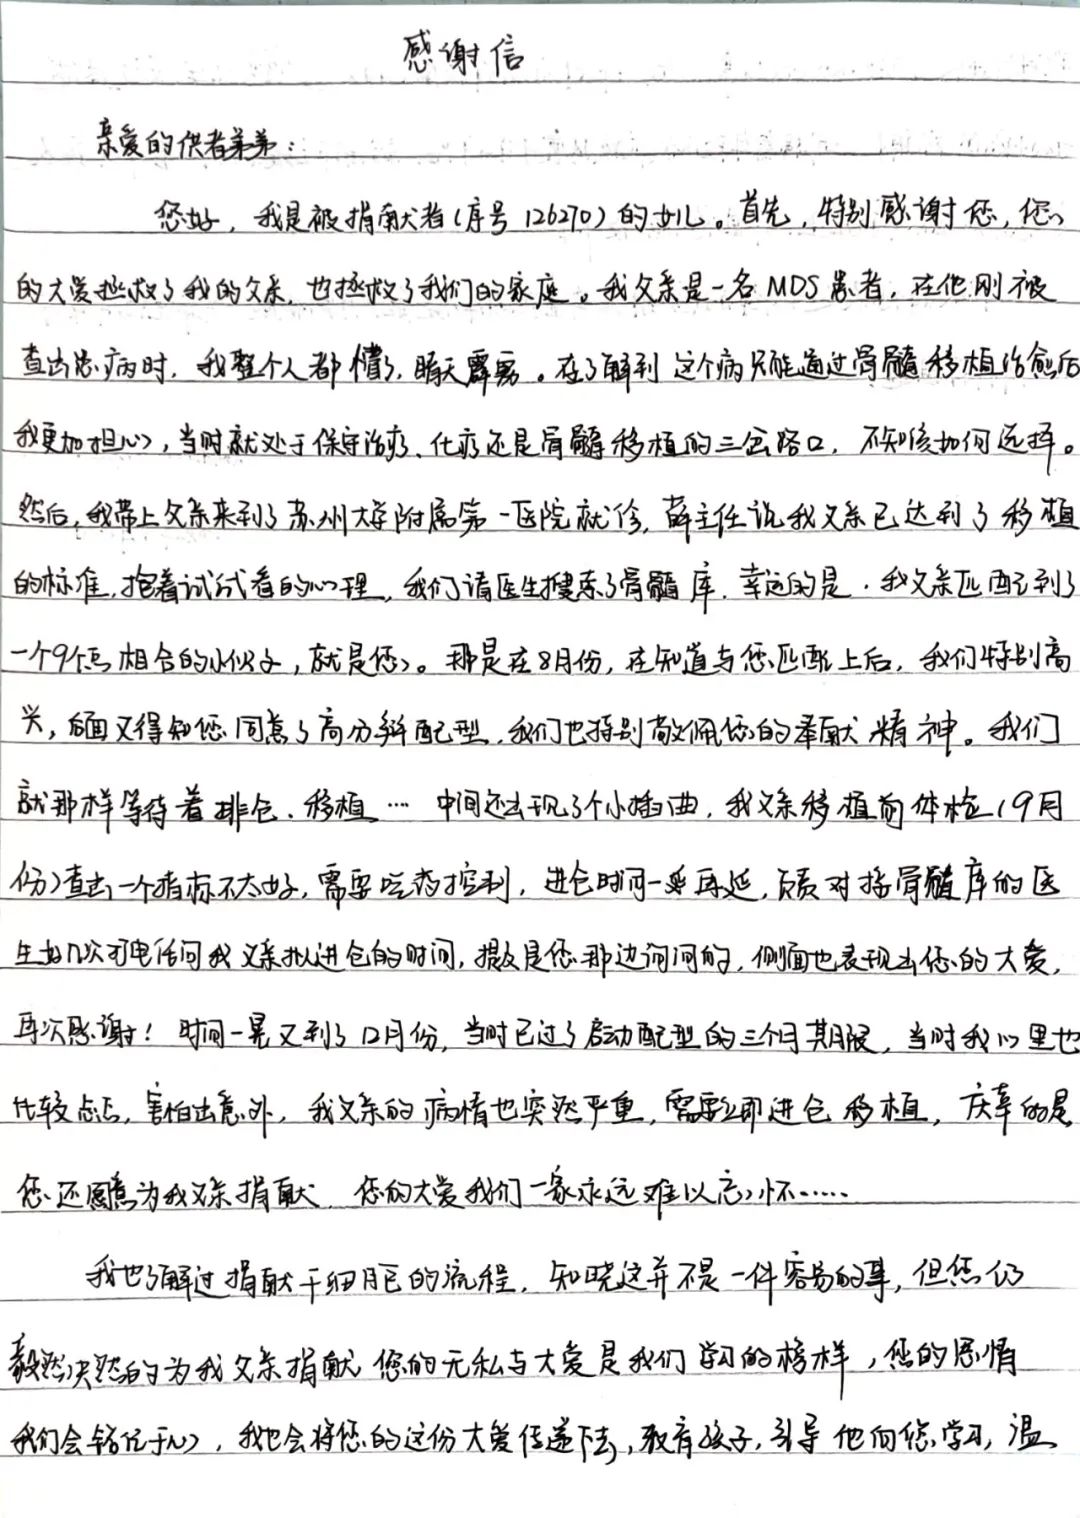 感谢信
亲爱的供者弟弟：
您好，我是被捐献者（序号126270）的女儿。首先，特别感谢您，您
的大爱拯救了我的父亲，也拯救了我们的家庭。我父亲是一名MDS患者，在他刚被
查出患病时，我整个人都懵了，晴天霹雳。在了解到这个病只能通过骨髓移植治愈后
我更加担心，当时就处于保守治疗、化疗还是骨髓移植的三岔路口，不知该如何选择。
然后，我带上父亲来到了苏州大学附属第一医院就诊，薛主任说我父亲已达到了移植
的标准，抱着试试看的心理，我们请医生搜索了骨髓库，幸运的是，我父亲匹配到了
一个9个点相合的小伙子，就是您。那是在8月份，在知道与您匹配上后，我们特别高
兴，后面又得知您同意了高分辨配型，我们也特别敬佩您的奉献精神。我们
就那样等待着排仓、移植…中间还出现了个小插曲，我父亲移植前体检（9月
份）查出一个指标不太好，需要吃药控制，进仓时间一延再延，负责对接骨髓库的医
生好几次打电话问我父亲拟进仓的时间，提及是您那边询问的，侧面也表现出您的大爱，
再次感谢！时间一晃又到了12月份，当时已过了启动配型的三个月期限，当时我心里也
比较忐忑，害怕出意外，我父亲的病情也突然严重，需要立即进仓移植，庆幸的是
您还愿意为我父亲捐献，您的大爱我们一家永远难以忘怀……
我也了解过捐献干细胞的流程，知晓这并不是一件容易的事，但您仍
毅然决然的为我父亲捐献，您的无私与大爱是我们学习的榜样，您的恩情
我们会铭记于心，我也会将您的这份大爱传递下去，教育孩子，引导他向您学习，温